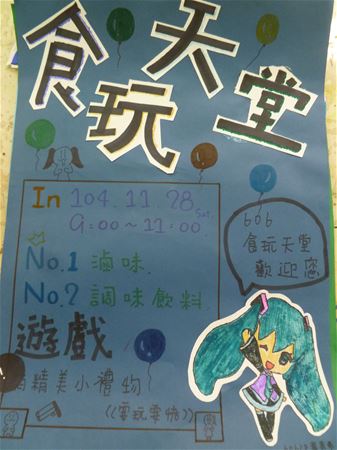 食玩天堂
In 104.11.28 Sat.
9:00~11:00
No.1 滷味.
No.2 調味飲料
遊戲
有精美小禮物
((要玩要快))
606
食玩天堂
歡迎您